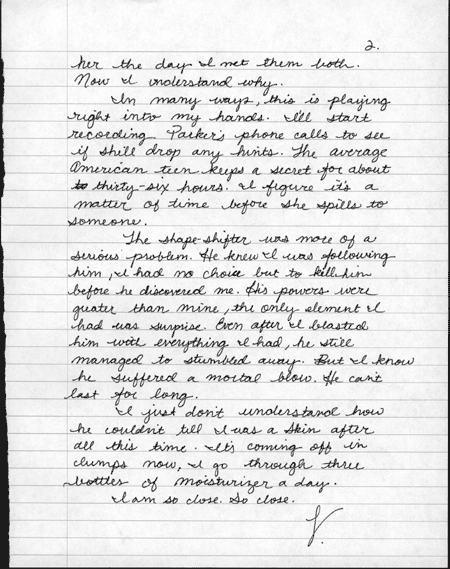 2.
her the day I met them both.
Now I understand why.
In many ways, this is playing
right into my hands. I'll start
recording Parker's phone calls to see
if she'll drop any hints. The average
American teen keeps a secret for about
to thirty-six hours. I figure it's a
matter of time before she spills to
someone.
The shape-shifter was more of a
serious problem. He knew I was following
him, I had no choice but to kill him
before he discovered me. His powers were
greater than mine, the only element I
had was surprise. Even after I blasted
him with everything I had, he still
managed to stumbled away. But I know
he suffered a mortal blow. He can't
last for long.
I just don't understand how
he couldn't tell I was a Skin after
all this time. It's coming off in
clumps now, I go through three
bottles of moisturizer a day.
I am so close. So close.